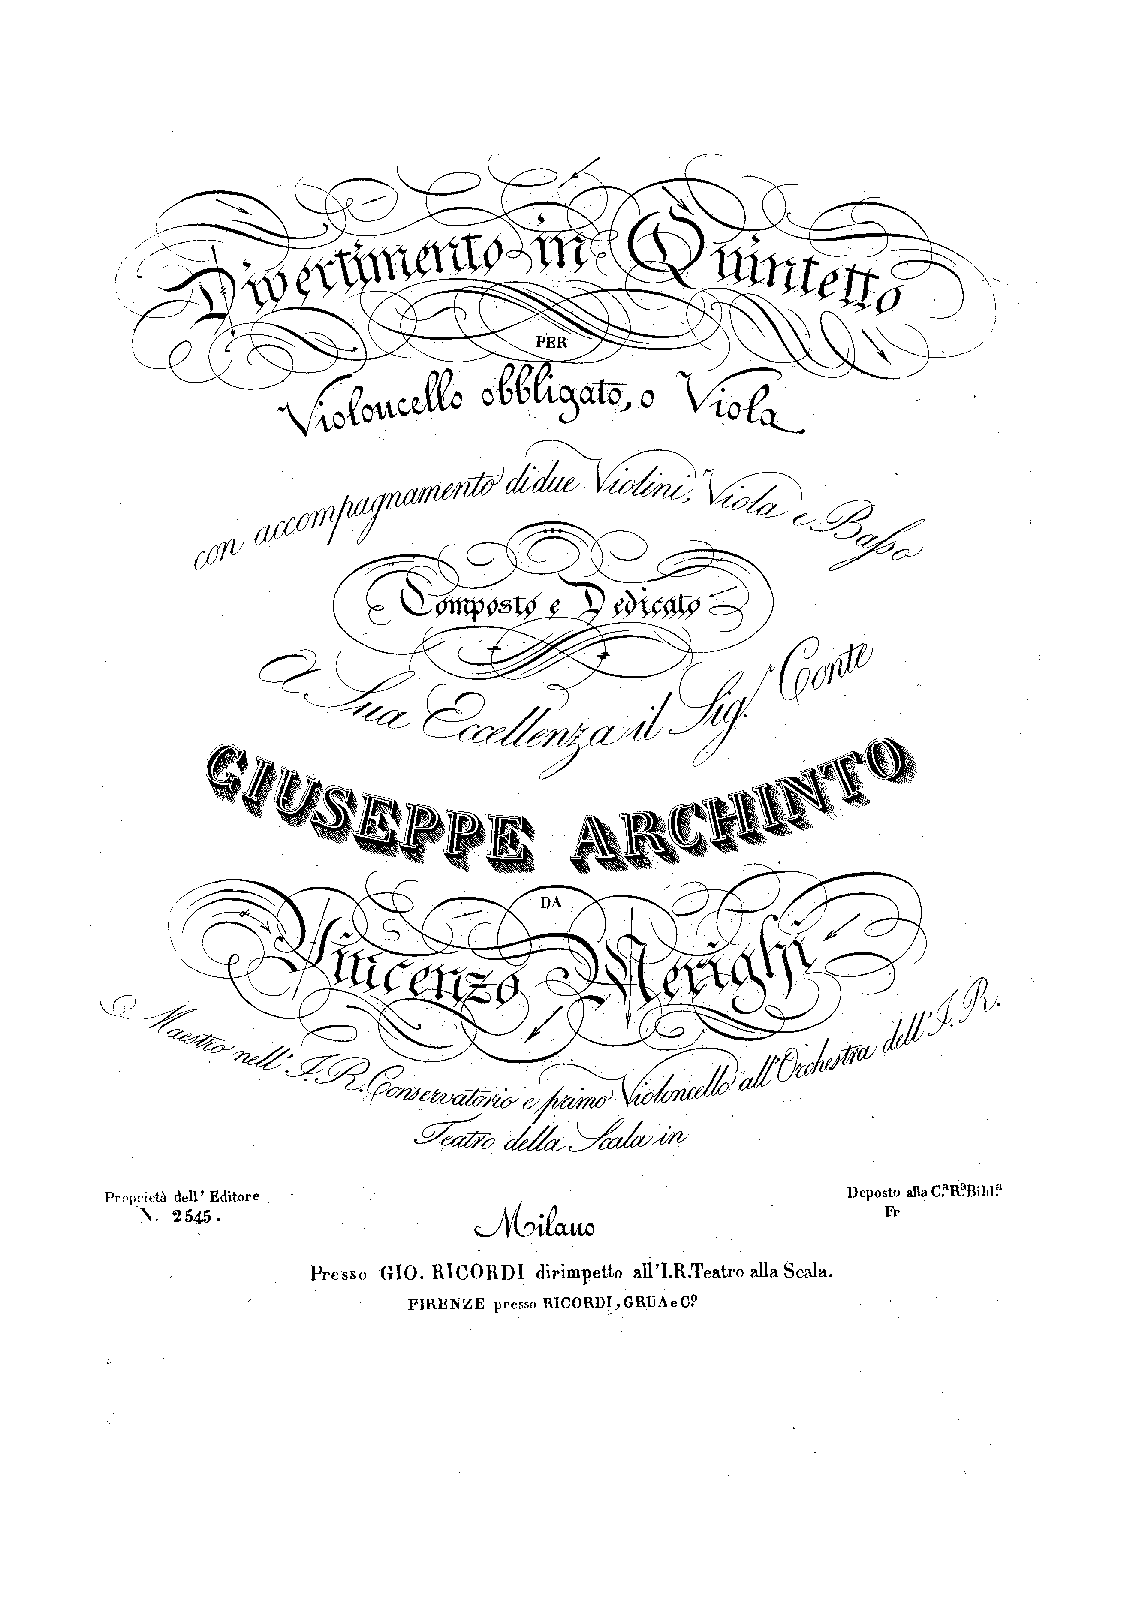 Divertimento in Quintetto
PER
Violoncello obbligato, o Viola
con accompagnamento di due Violini, Viola e Baſso
Composto e Dedicato
A Sua Eccellenza il Sig.r Conte
GIUSEPPE ARCHINTO
DA
Vincenzo Merighi
Maestro nell' I. R. Conservatorio e primo Violoncello all' Orchestra dell' I. R.
Teatro della Scala in
Proprietà dell' Editore
N. 2545.
Deposto alla C.a R.a Bibl.a
Fr
Milano
Presso GIO. RICORDI dirimpetto all' I.R. Teatro alla Scala.
FIRENZE presso RICORDI, GRUA e C.o